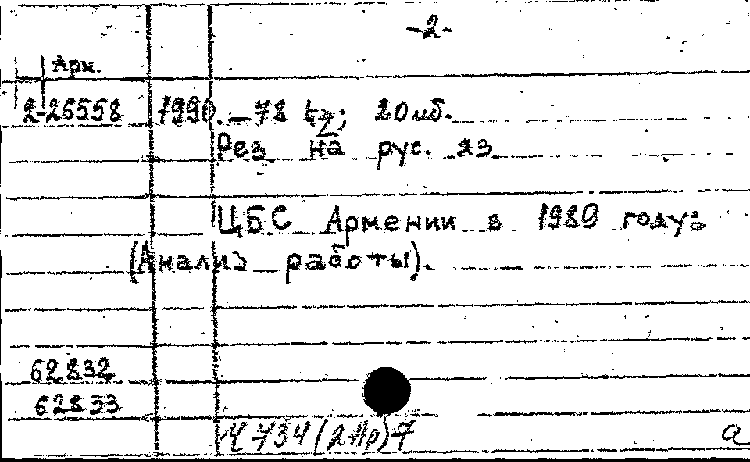 -2-
Арм.
2-26558 1990.-78 էջ; 20 см.
Рез на рус. яз
ЦБС Армении в 1989 году:
(Анализ работы).
62832
62833
Ч 734(2Ар)7 а